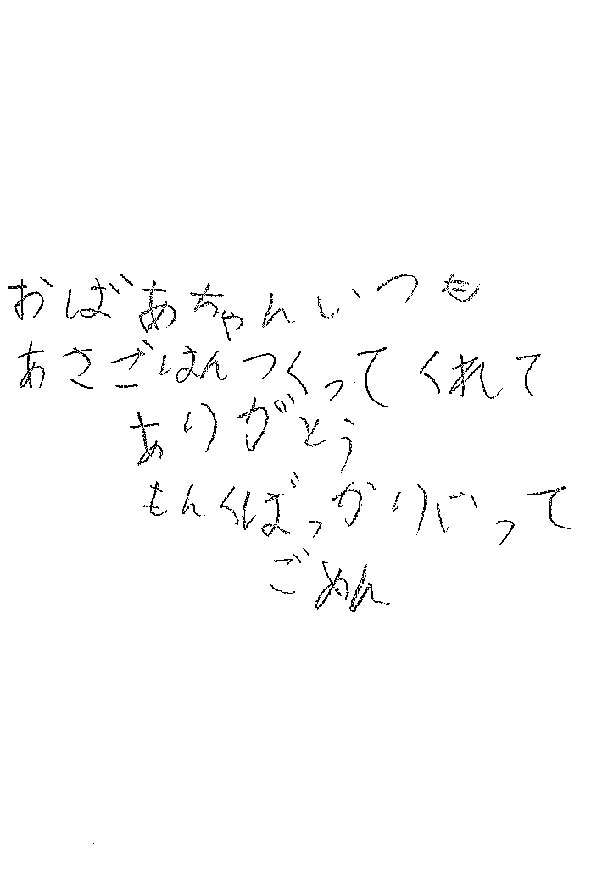 おばあちゃんいつも
あさごはんつくってくれて
ありがとう
もんくばっかりいって
ごめん